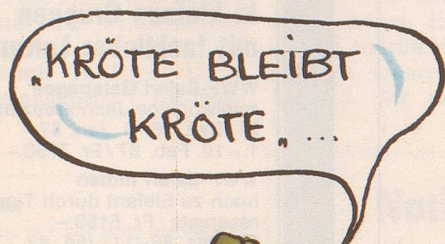 „KRÖTE BLEIBT
KRÖTE„ ...